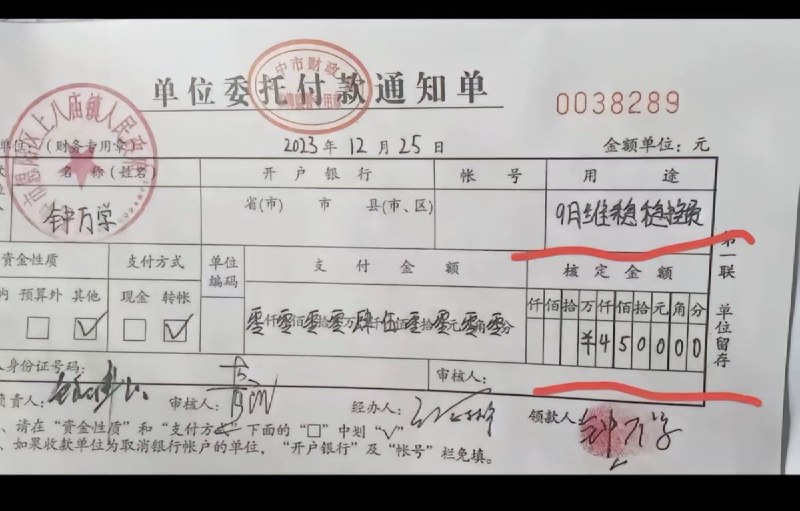 单位委托付款通知单
中市财政
0038289
区上八庙镇人民政府
(财务专用章)
2023年12月25日
金额单位：元
名称(姓名)
开户银行
帐号
用途
钟万学
省(市) 市 县(市、区)
9月维稳稳控费
资金性质
支付方式
单位编码
支付金额
核定金额
预算外 其他
现金 转帐
仟佰拾万仟佰拾元角分
零零零零肆伍零零零零
仟佰拾万仟佰拾元角分
¥4500000
第一联 单位留存
人身份证号码：
审核人：
责人：
审核人：
经办人：
领款人：
钟万学
、请在“资金性质”和“支付方式”下面的“□”中划“√”
、如果收款单位为取消银行帐户的单位，“开户银行”及“帐号”栏免填。